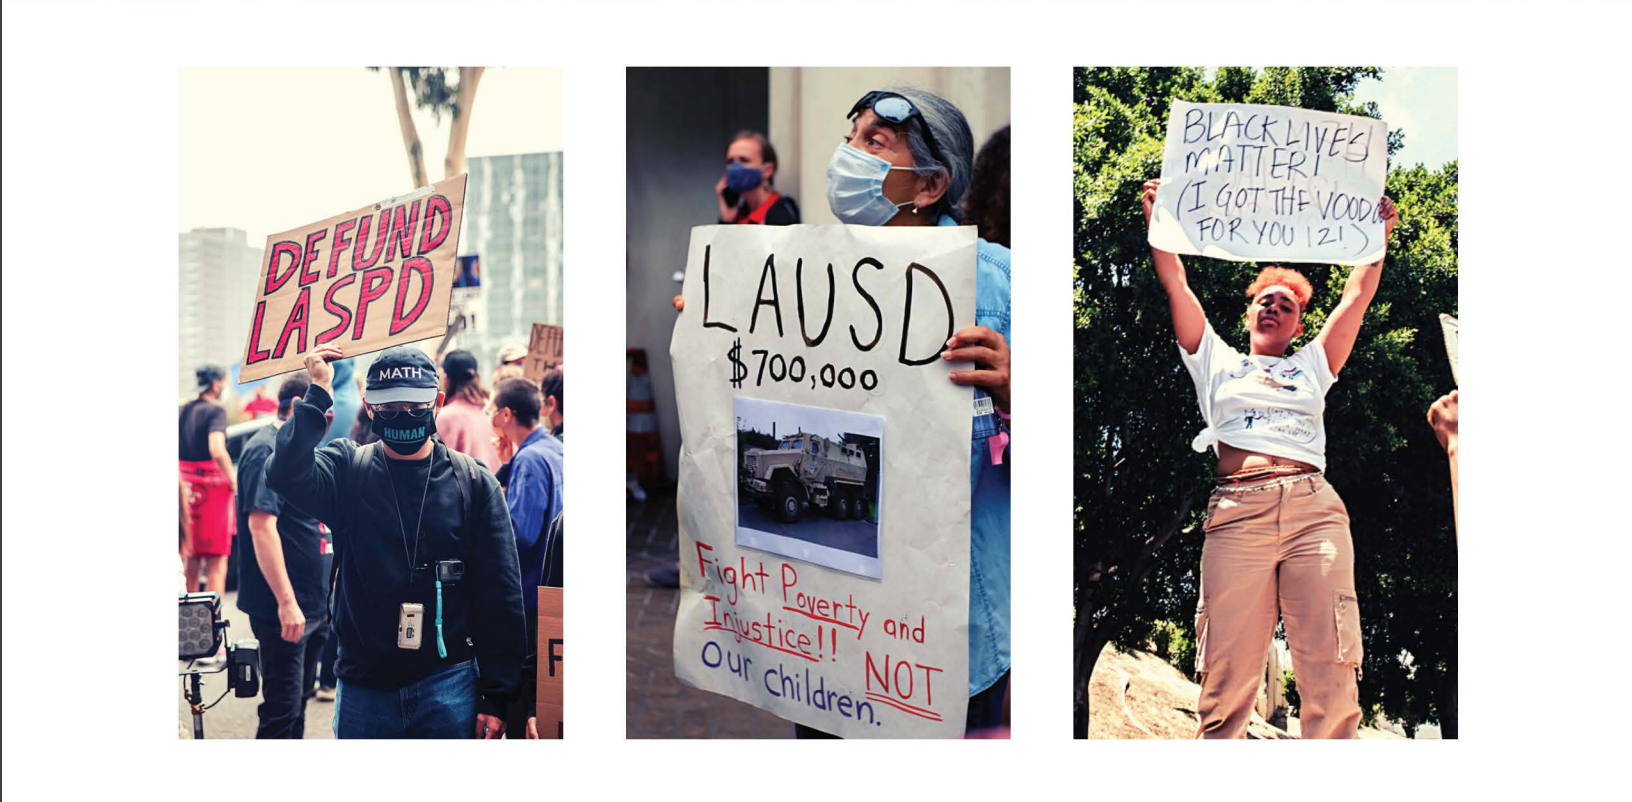 DEFUND
LASPD
MATH
HUMAN
DEFU
TH
F
LAUSD
$700,000
Fight Poverty and
Injustice!!
NOT
Our children.
BLACK LIVES
MATTER!
(I GOT THE VOODO
FOR YOU 12!)